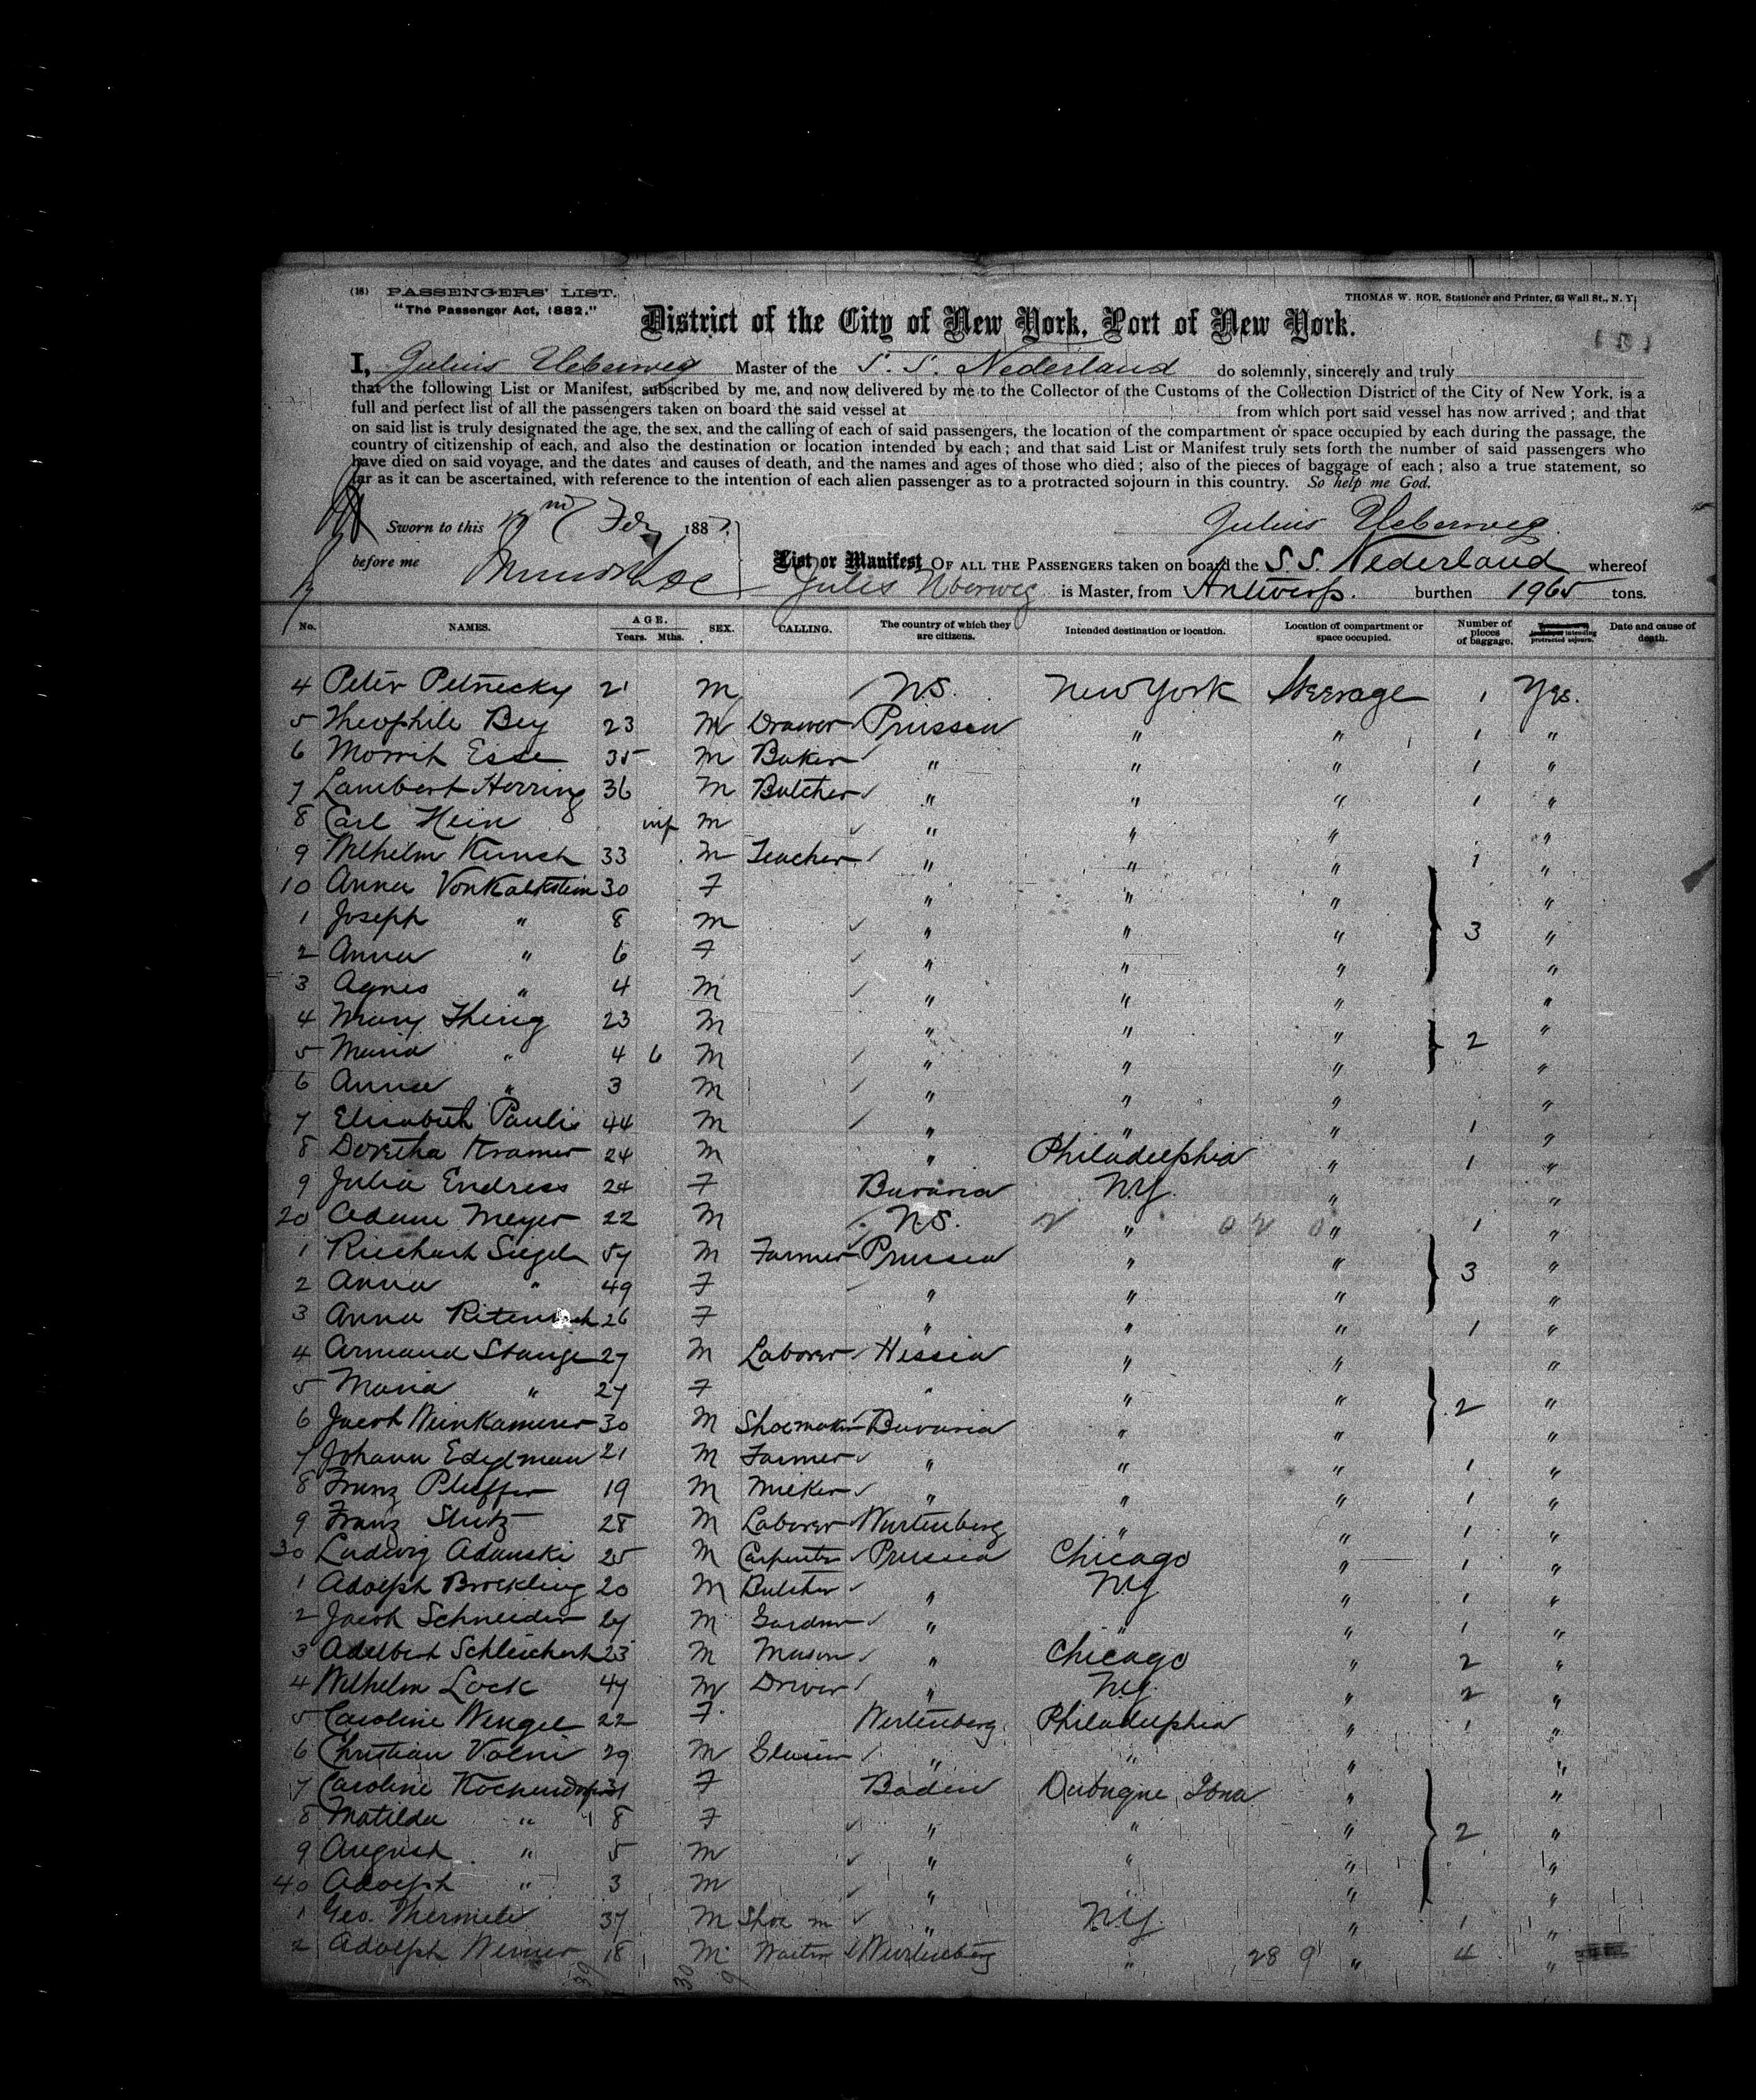 (16) PASSENGERS' LIST.
"The Passenger Act, 1882."
THOMAS W. ROE, Stationer and Printer, 63 Wall St., N. Y.
District of the City of New York, Port of New York.
I, Julius Ueberweg Master of the S. S. Nederland do solemnly, sincerely and truly
that the following List or Manifest, subscribed by me, and now delivered by me to the Collector of the Customs of the Collection District of the City of New York, is a
full and perfect list of all the passengers taken on board the said vessel at from which port said vessel has now arrived; and that
on said list is truly designated the age, the sex, and the calling of each of said passengers, the location of the compartment or space occupied by each during the passage, the
country of citizenship of each, and also the destination or location intended by each; and that said List or Manifest truly sets forth the number of said passengers who
have died on said voyage, and the dates and causes of death, and the names and ages of those who died; also of the pieces of baggage of each; also a true statement, so
far as it can be ascertained, with reference to the intention of each alien passenger as to a protracted sojourn in this country. So help me God.
Sworn to this Feby 1887 Julius Ueberweg
before me
List or Manifest OF ALL THE PASSENGERS taken on board the S. S. Nederland whereof
Julis Uberweg is Master, from Antwerp. burthen 1965 tons.
No. NAMES. AGE. Years. Mths. SEX. CALLING. The country of which they are citizens. Intended destination or location. Location of compartment or space occupied. Number of pieces of baggage. intending protracted sojourn. Date and cause of death.
4 Peter Petnecky 21 M N.S. New York Steerage 1 Yes.
5 Theophile Bey 23 M Drawer Prussia " " 1 "
6 Morrih Esse 35 M Baker " " " 1 "
7 Lambert Herring 36 M Butcher " " " 1 "
8 Carl Hein inf M " " " "
9 Wilhelm Kunsch 33 M Teacher " " " 1 "
10 Anna VonKalkstein 30 F " " " "
1 Joseph " 8 M " " " 3 "
2 Anna " 6 F " " " "
3 Agnes " 4 M " " " "
4 Mary Thirig 23 M " " " 2 "
5 Maria " 4 6 M " " " "
6 Anna " 3 M " " " "
7 Elisabeth Paulis 44 M " " " 1 "
8 Doretha Kramer 24 M " Philadelphia " 1 "
9 Julia Endress 24 F Bavaria NY. " "
20 Adam Meyer 22 M N.S. " " 1 "
1 Riechart Siegel 57 M Farmer Prussia " " 3 "
2 Anna " 49 F " " " "
3 Anna 26 F " " " 1 "
4 Armand Stange 27 M Laborer Hessia " " "
5 Maria " 27 F " " " 2 "
6 Jacob Weinkammer 30 M Shoemaker Bavaria " " "
7 Johann Edelman 21 M Farmer " " " 1 "
8 Franz Pleffer 19 M " " " 1 "
9 Franz Stutz 28 M Laborer Wurtenberg " " 1 "
30 Ludwig Adamski 25 M Carpenter Prussia Chicago " 1 "
1 Adolph Brockling 20 M Butcher " NY " 1 "
2 Jacob Schneider 27 M Gardner " " " 1 "
3 Adelbert Schleichert 23 M Mason " Chicago " 2 "
4 Wilhelm Lock 47 M Driver " NY. " 2 "
5 Caroline Wengel 22 F Wertenberg. Philadelphia " 1 "
6 Christian Volni 29 M Glasier " " " "
7 Caroline 31 F Baden Dubuque Iowa " "
8 Matilda " 8 F " " " 2 "
9 August " 5 M " " " "
40 Adolph " 3 M " " " "
1 Geo. Thermele 37 M Shoe m " NY. " 1 "
2 Adolph Werner 18 M Waiter Wurtenberg " 28 9 " 4 "
39 30 9